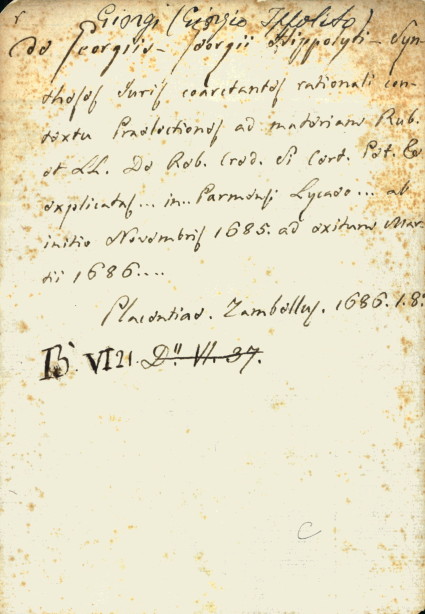 Giorgi (Giorgio Ippolito)
de Georgiis - Georgii Hippolyti - Syn-
theses Juris coarctantes rationali con-
textu Praelectiones ad materiam Rub.
et LL. De Reb. Cred. Si Cert. Pet. Co
explicatas... in.. Parmensi Lycaeo... ab
initio Novembris 1685. ad exitum Mar-
tii 1686....
Placentiae. Zambellus. 1686. 1. 8.
B. VI 21. D.II VI. 37.
C